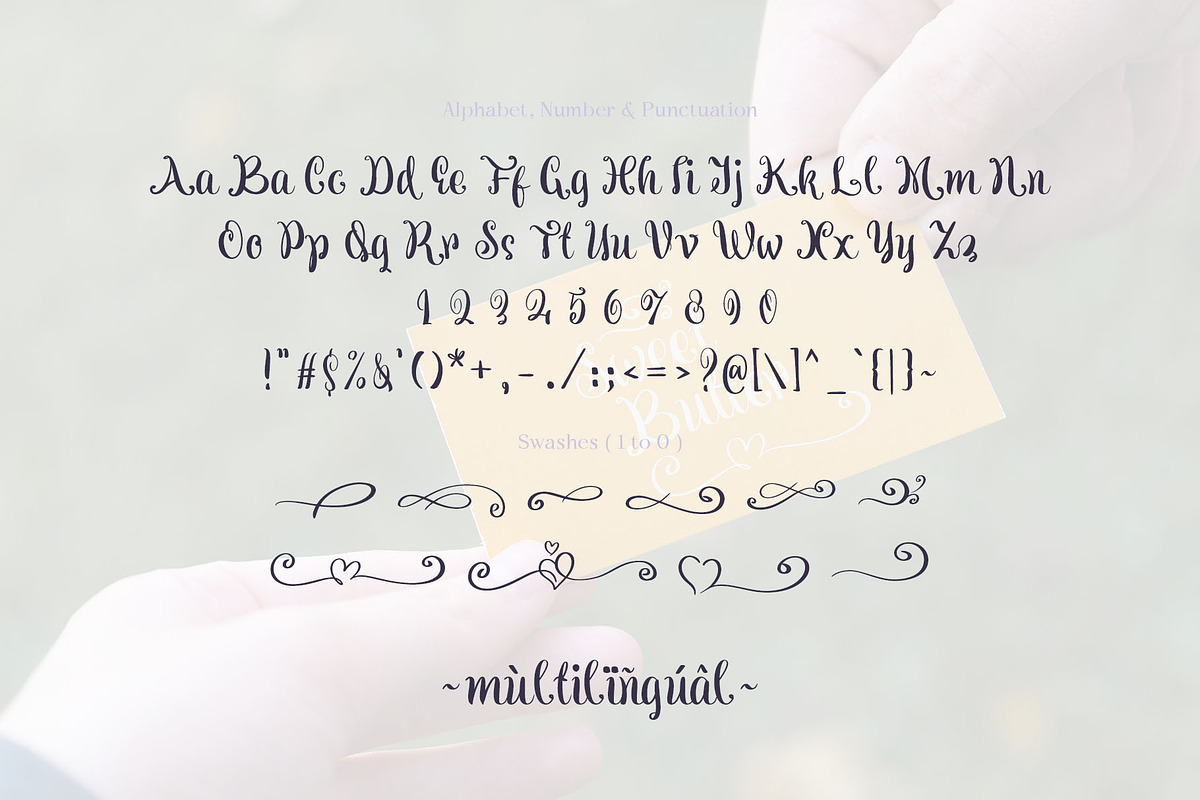 Alphabet, Number & Punctuation
Aa Ba Cc Dd Ee Ff Gg Hh Ii Jj Kk Ll Mm Nn
Oo Pp Qq Rr Ss Tt Uu Vv Ww Xx Yy Zz
1 2 3 4 5 6 7 8 9 0
!"#$%&'()*+,-./:;<=>?@[\]^_`{|}~
Sweet
Button
Swashes ( 1 to 0 )
~mùltilïñgúâl~